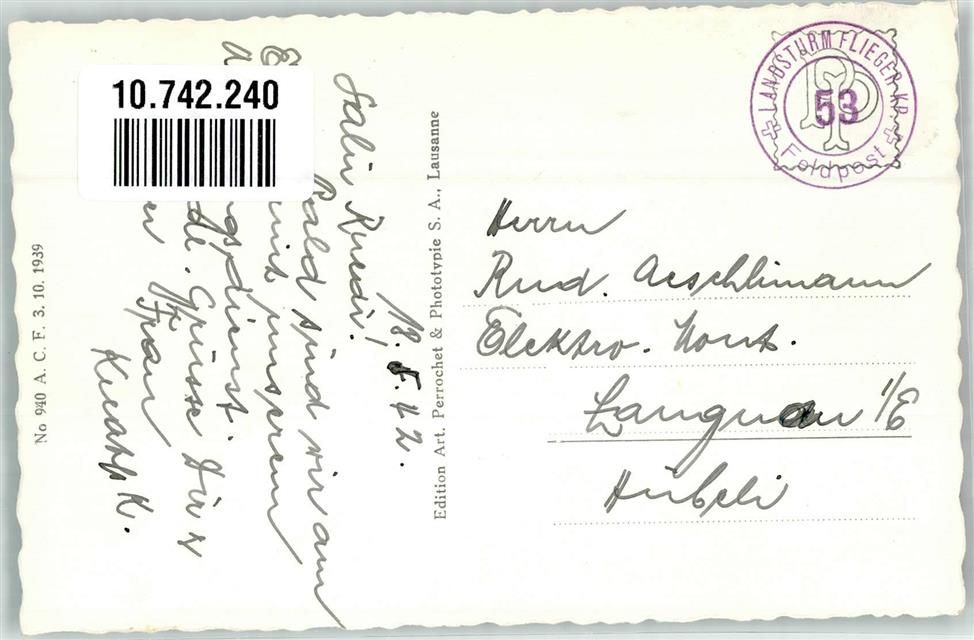 10.742.240
LANDSTURM FLIEGER KP.
53
Feldpost
PP
18. 5. 42.
Salü Ruedi!
Bald sind wir am
E
mit unserem
a
gsdienst.
Grüsse Dir &
Frau
K.
Edition Art. Perrochet & Phototypie S. A., Lausanne
No 940 A. C. F. 3. 10. 1939
Herrn
Rud. Aeschlimann
Elektro. Mont.
Langnau i/E
Hübeli